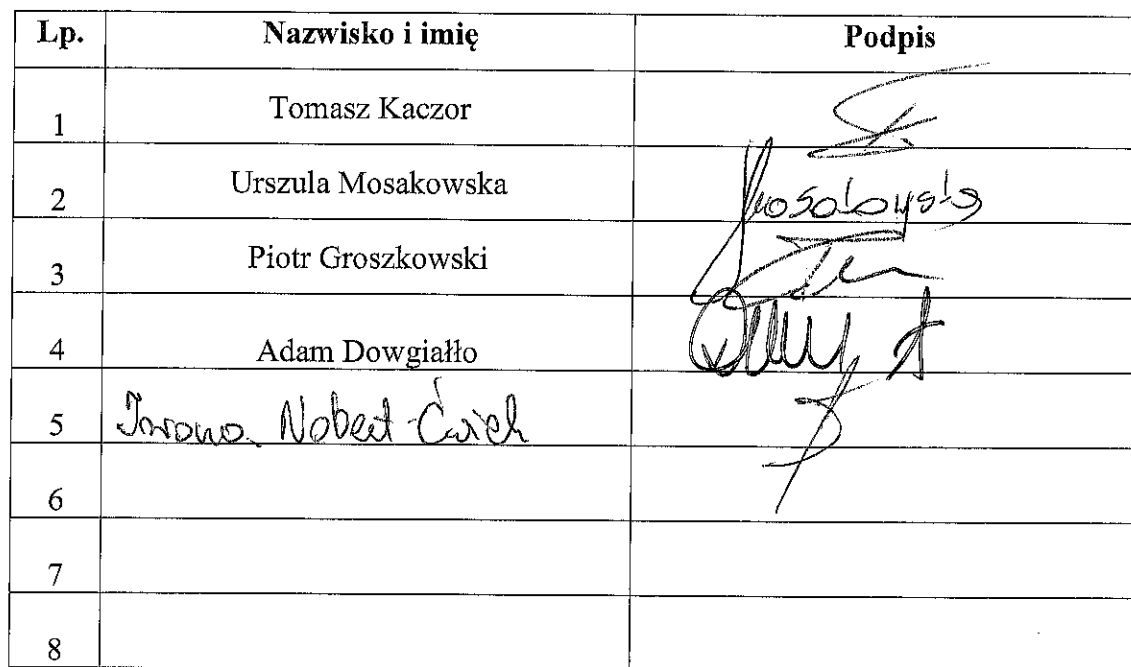 Lp. Nazwisko i imię Podpis
1 Tomasz Kaczor
2 Urszula Mosakowska
3 Piotr Groszkowski
4 Adam Dowgiałło
5 Iwona
6
7
8